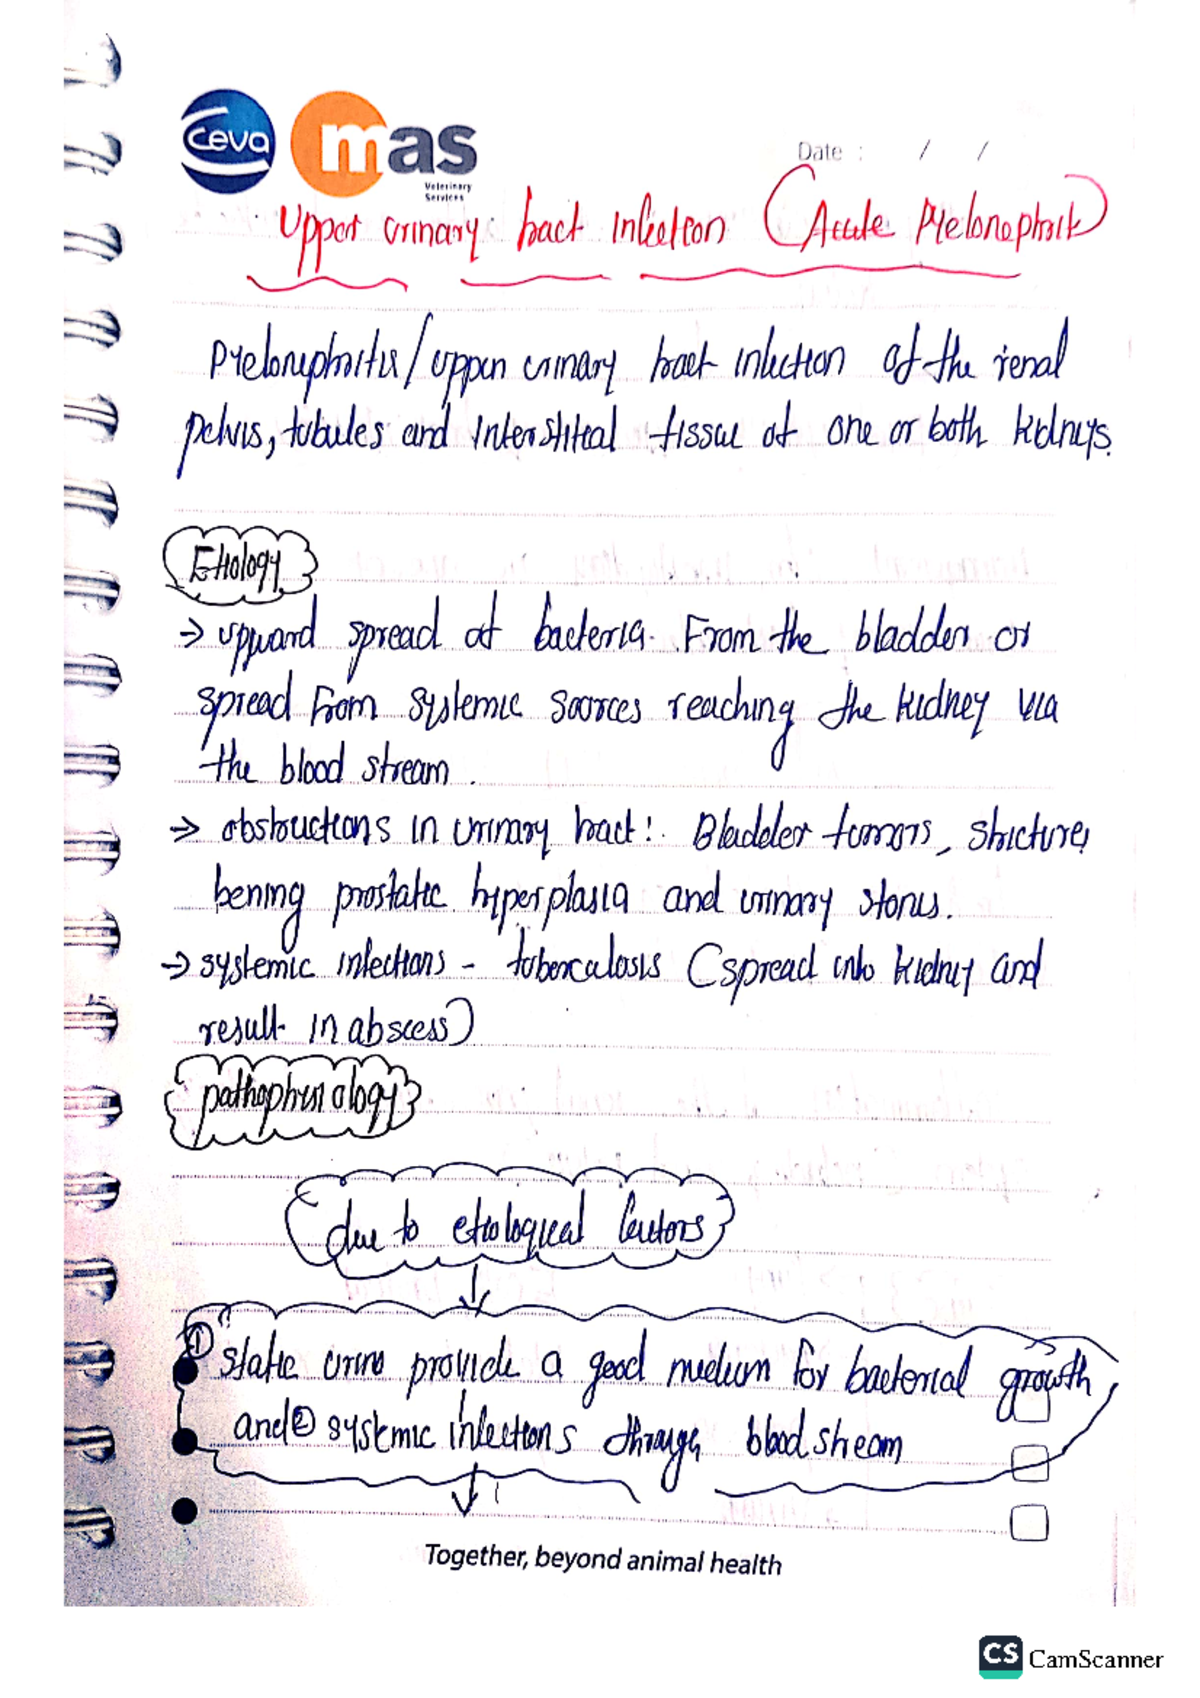 ceva mas
Veterinary
Services
Date : / /
Upper urinary tract infection (Acute Pyelonephritis)
Pyelonephritis/upper urinary tract infection of the renal
pelvis, tubules and interstitial tissue of one or both kidneys.
Etiology
→ upward spread of bacteria. From the bladder or
spread from systemic sources reaching the kidney via
the blood stream.
→ obstructions in urinary tract: Bladder tumors, stricture,
bening prostatic hyperplasia and urinary stones.
→ systemic infections - tuberculosis (spread into kidney and
result in abscess)
pathophysiology
due to etiological factors
↓
① static urine provide a good medium for bacterial growth
and ② systemic infections through blood stream
↓
Together, beyond animal health
CS CamScanner